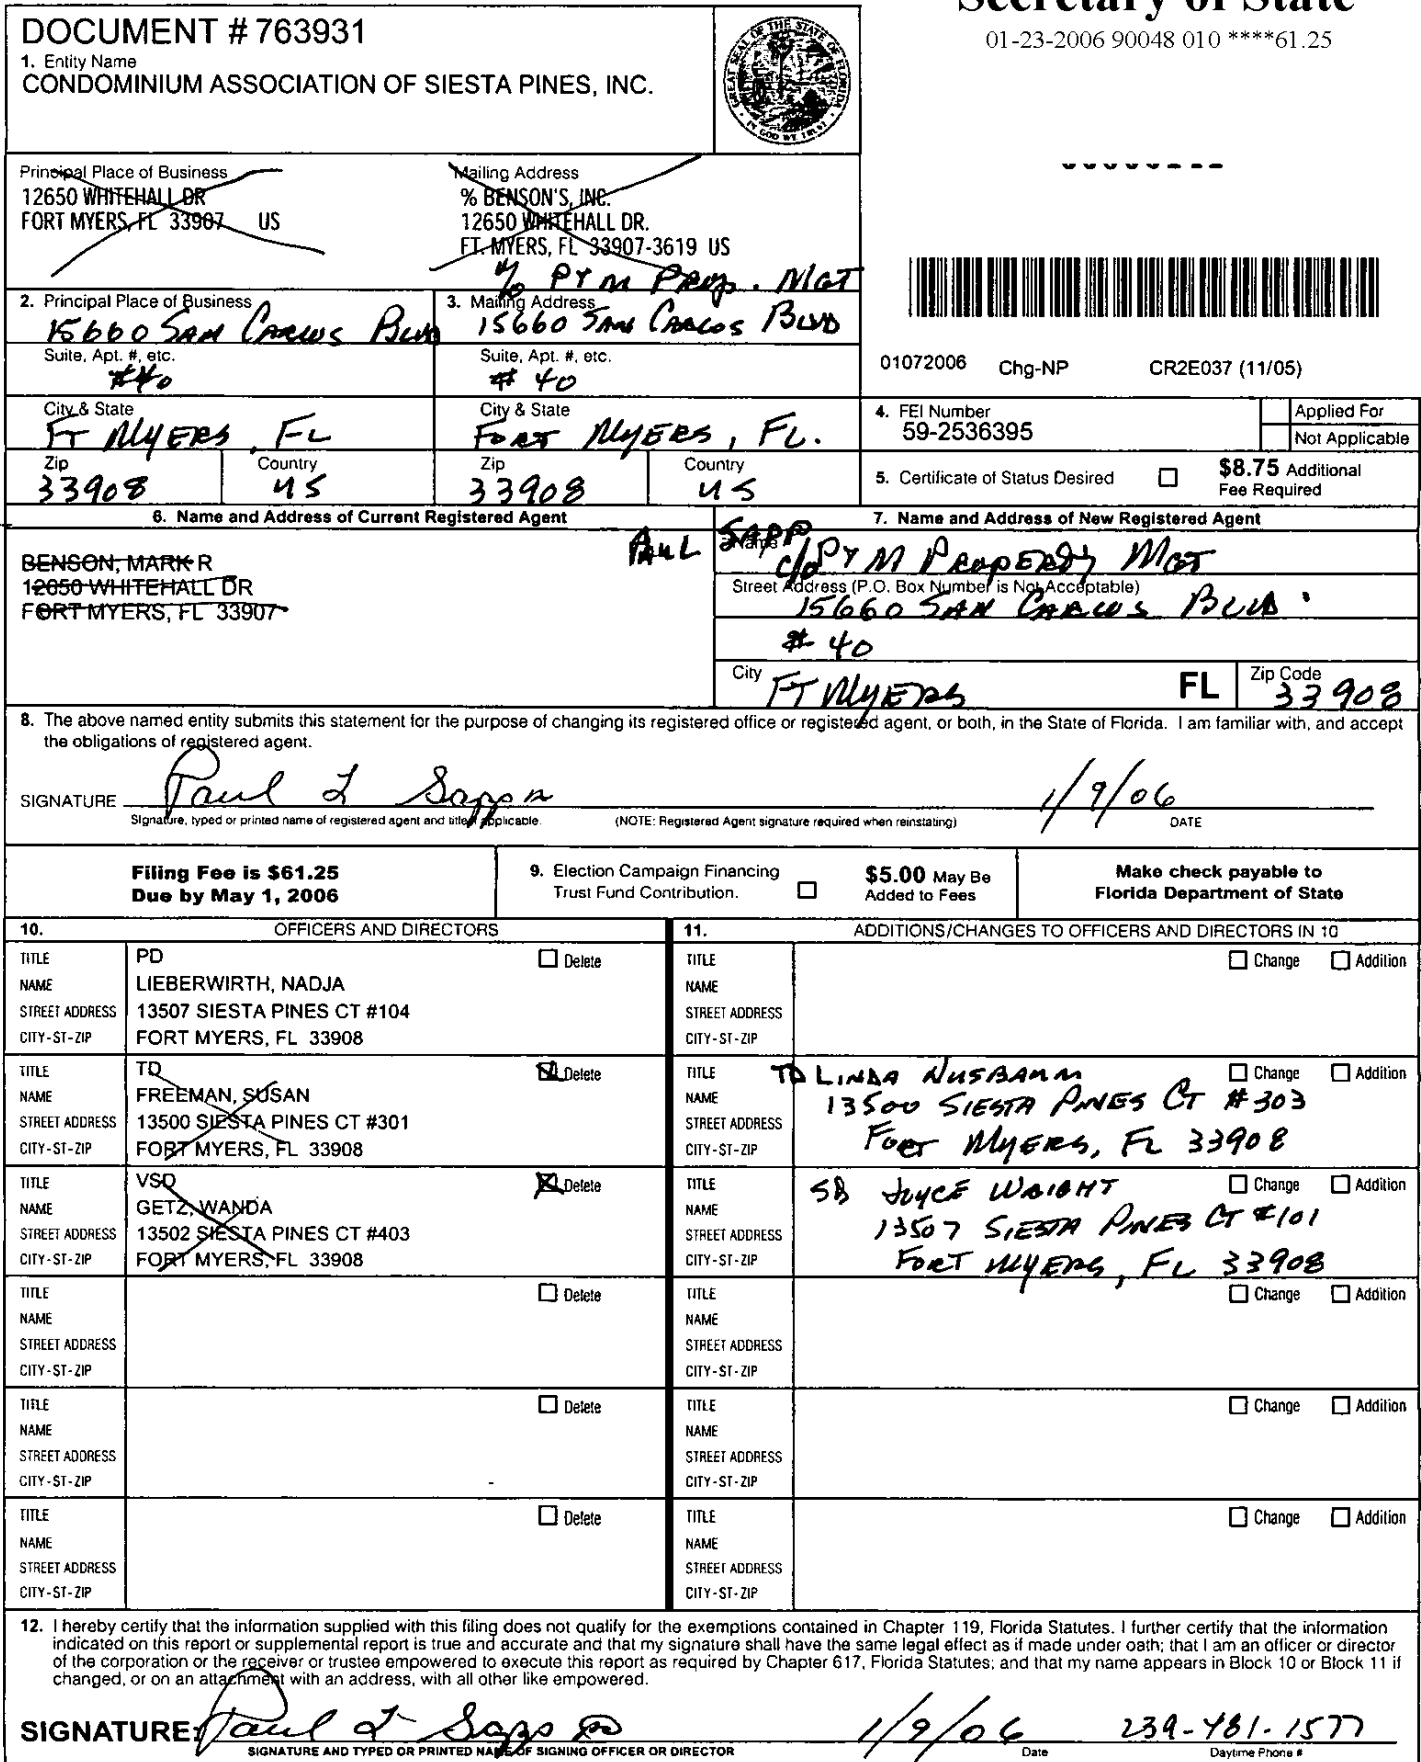 Secretary of State
01-23-2006 90048 010 ****61.25
DOCUMENT # 763931
1. Entity Name
CONDOMINIUM ASSOCIATION OF SIESTA PINES, INC.
GREAT SEAL OF THE STATE OF FLORIDA
IN GOD WE TRUST
Principal Place of Business
12650 WHITEHALL DR
FORT MYERS, FL 33907 US
Mailing Address
% BENSON'S, INC.
12650 WHITEHALL DR.
FT. MYERS, FL 33907-3619 US
c/o PYM PROP. MGT
2. Principal Place of Business
15660 SAN CARLOS BLVD
Suite, Apt. #, etc.
#40
City & State
FT MYERS, FL
Zip
33908
Country
US
3. Mailing Address
15660 SAN CARLOS BLVD
Suite, Apt. #, etc.
# 40
City & State
FORT MYERS, FL.
Zip
33908
Country
US
01072006 Chg-NP CR2E037 (11/05)
4. FEI Number
59-2536395
Applied For
Not Applicable
5. Certificate of Status Desired
$8.75 Additional
Fee Required
6. Name and Address of Current Registered Agent
BENSON, MARK R
12650 WHITEHALL DR
FORT MYERS, FL 33907
7. Name and Address of New Registered Agent
PAUL SAPP
Name
c/o PYM PROPERTY MGT
Street Address (P.O. Box Number is Not Acceptable)
15660 SAN CARLOS BLVD.
# 40
City
FT MYERS
FL
Zip Code
33908
8. The above named entity submits this statement for the purpose of changing its registered office or registered agent, or both, in the State of Florida. I am familiar with, and accept
the obligations of registered agent.
SIGNATURE Paul L 1/9/06
Signature, typed or printed name of registered agent and title if applicable. (NOTE: Registered Agent signature required when reinstating) DATE
Filing Fee is $61.25
Due by May 1, 2006
9. Election Campaign Financing
Trust Fund Contribution.
$5.00 May Be
Added to Fees
Make check payable to
Florida Department of State
10. OFFICERS AND DIRECTORS
11. ADDITIONS/CHANGES TO OFFICERS AND DIRECTORS IN 10
TITLE PD Delete
NAME LIEBERWIRTH, NADJA
STREET ADDRESS 13507 SIESTA PINES CT #104
CITY-ST-ZIP FORT MYERS, FL 33908
TITLE Change Addition
NAME
STREET ADDRESS
CITY-ST-ZIP
TITLE TD Delete
NAME FREEMAN, SUSAN
STREET ADDRESS 13500 SIESTA PINES CT #301
CITY-ST-ZIP FORT MYERS, FL 33908
TITLE TD LINDA NUSBAUM Change Addition
NAME 13500 SIESTA PINES CT #303
STREET ADDRESS
CITY-ST-ZIP FORT MYERS, FL 33908
TITLE VSD Delete
NAME GETZ, WANDA
STREET ADDRESS 13502 SIESTA PINES CT #403
CITY-ST-ZIP FORT MYERS, FL 33908
TITLE SD JOYCE WRIGHT Change Addition
NAME
STREET ADDRESS 13507 SIESTA PINES CT #101
CITY-ST-ZIP FORT MYERS, FL 33908
TITLE Delete
NAME
STREET ADDRESS
CITY-ST-ZIP
TITLE Change Addition
NAME
STREET ADDRESS
CITY-ST-ZIP
TITLE Delete
NAME
STREET ADDRESS
CITY-ST-ZIP
TITLE Change Addition
NAME
STREET ADDRESS
CITY-ST-ZIP
TITLE Delete
NAME
STREET ADDRESS
CITY-ST-ZIP
TITLE Change Addition
NAME
STREET ADDRESS
CITY-ST-ZIP
12. I hereby certify that the information supplied with this filing does not qualify for the exemptions contained in Chapter 119, Florida Statutes. I further certify that the information
indicated on this report or supplemental report is true and accurate and that my signature shall have the same legal effect as if made under oath; that I am an officer or director
of the corporation or the receiver or trustee empowered to execute this report as required by Chapter 617, Florida Statutes; and that my name appears in Block 10 or Block 11 if
changed, or on an attachment with an address, with all other like empowered.
SIGNATURE: Paul L 1/9/06 239-481-1577
SIGNATURE AND TYPED OR PRINTED NAME OF SIGNING OFFICER OR DIRECTOR Date Daytime Phone #